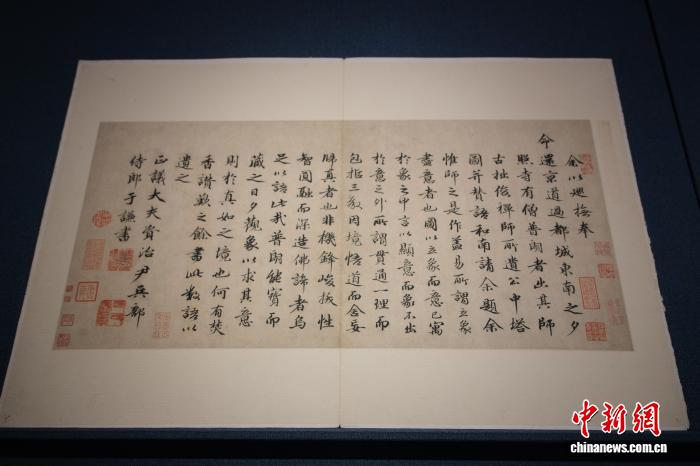 余以巡撫奉
命還京道過都城東南之夕
照寺有僧普朗者出其師
古拙俊禪師所遺公中塔
圖并贊語和南請余題余
惟師之是作蓋易所謂立象
盡意者也圖以立象而意已寓
於象之中言以顯意而象不出
於意之外所謂貫通一理而
包括三教因境悟道而舍妄
歸真者也非機鋒峻拔性
智圓融而深造佛諦者烏
足以語此哉普朗能寶而
藏之日夕觀象以求其意
則於真如之境也何有焚
香讚歎之餘書此數語以
遺之
正議大夫資治尹兵部
侍郎于謙書
中新網
chinanews.com